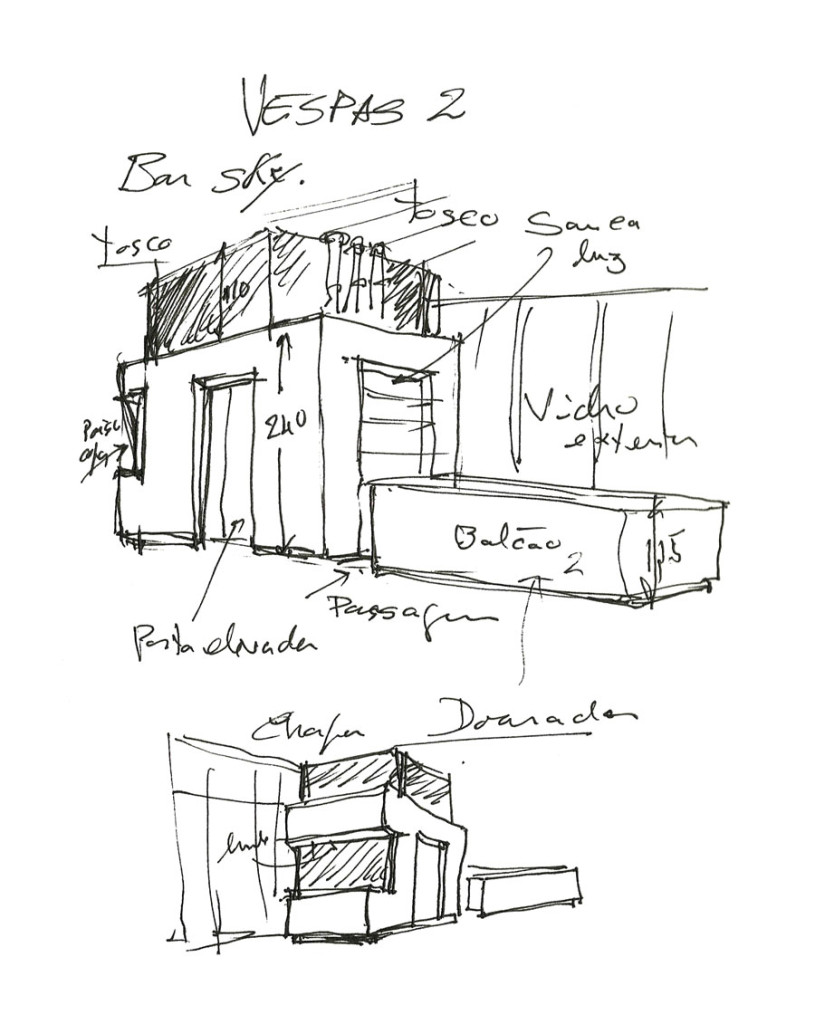 VESPAS 2
Bar sky.
tosco
tosco
Sanca
luz
110
240
Vidro
externo
Balcão
2
115
Passagem
Porta elevador
Chapa Dourada